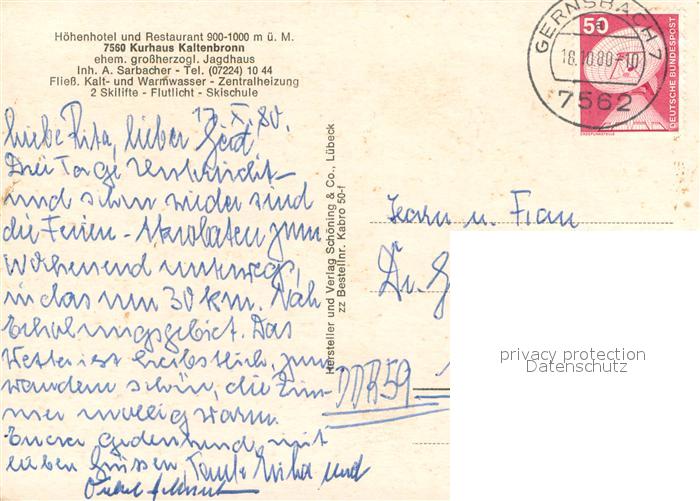 Höhenhotel und Restaurant 900-1000 m ü. M.
7560 Kurhaus Kaltenbronn
ehem. großherzogl. Jagdhaus
Inh. A. Sarbacher - Tel. (07224) 10 44
Fließ. Kalt- und Warmwasser - Zentralheizung
2 Skilifte - Flutlicht - Skischule
17.X.80.
Liebe Rita, lieber Gerd
Drei Tage Unterricht -
und schon wieder sind
die Ferien - Akrobaten zum
Wochenend unterwegs,
in das nur 30 km. Nah
Erholungsgebiet. Das
Wetter ist herbstlich, zum
wandern schön, die Zim-
mer mollig warm.
Eurer gedenkend, mit
lieben Grüssen, Tante und
Hersteller und Verlag Schöning & Co., Lübeck
zz Bestellnr. Kabro 50-f
GERNSBACH 7
18.10.80-10
7562
50
DEUTSCHE BUNDESPOST
ERDEFUNKSTELLE
Herrn u. Frau
Dr. G
DDR 59
privacy protection
Datenschutz